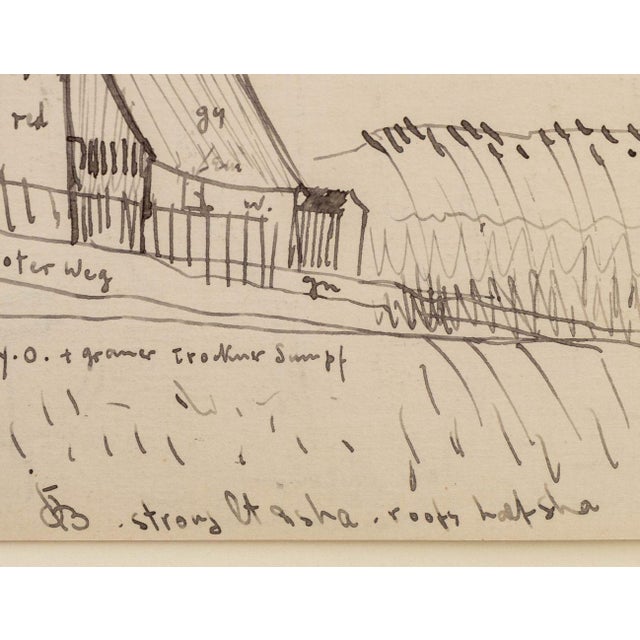 red
gy
w.
oter Weg
gn
y.O. + grauer trockner Sumpf
. strong lt & sha . roofs half sha